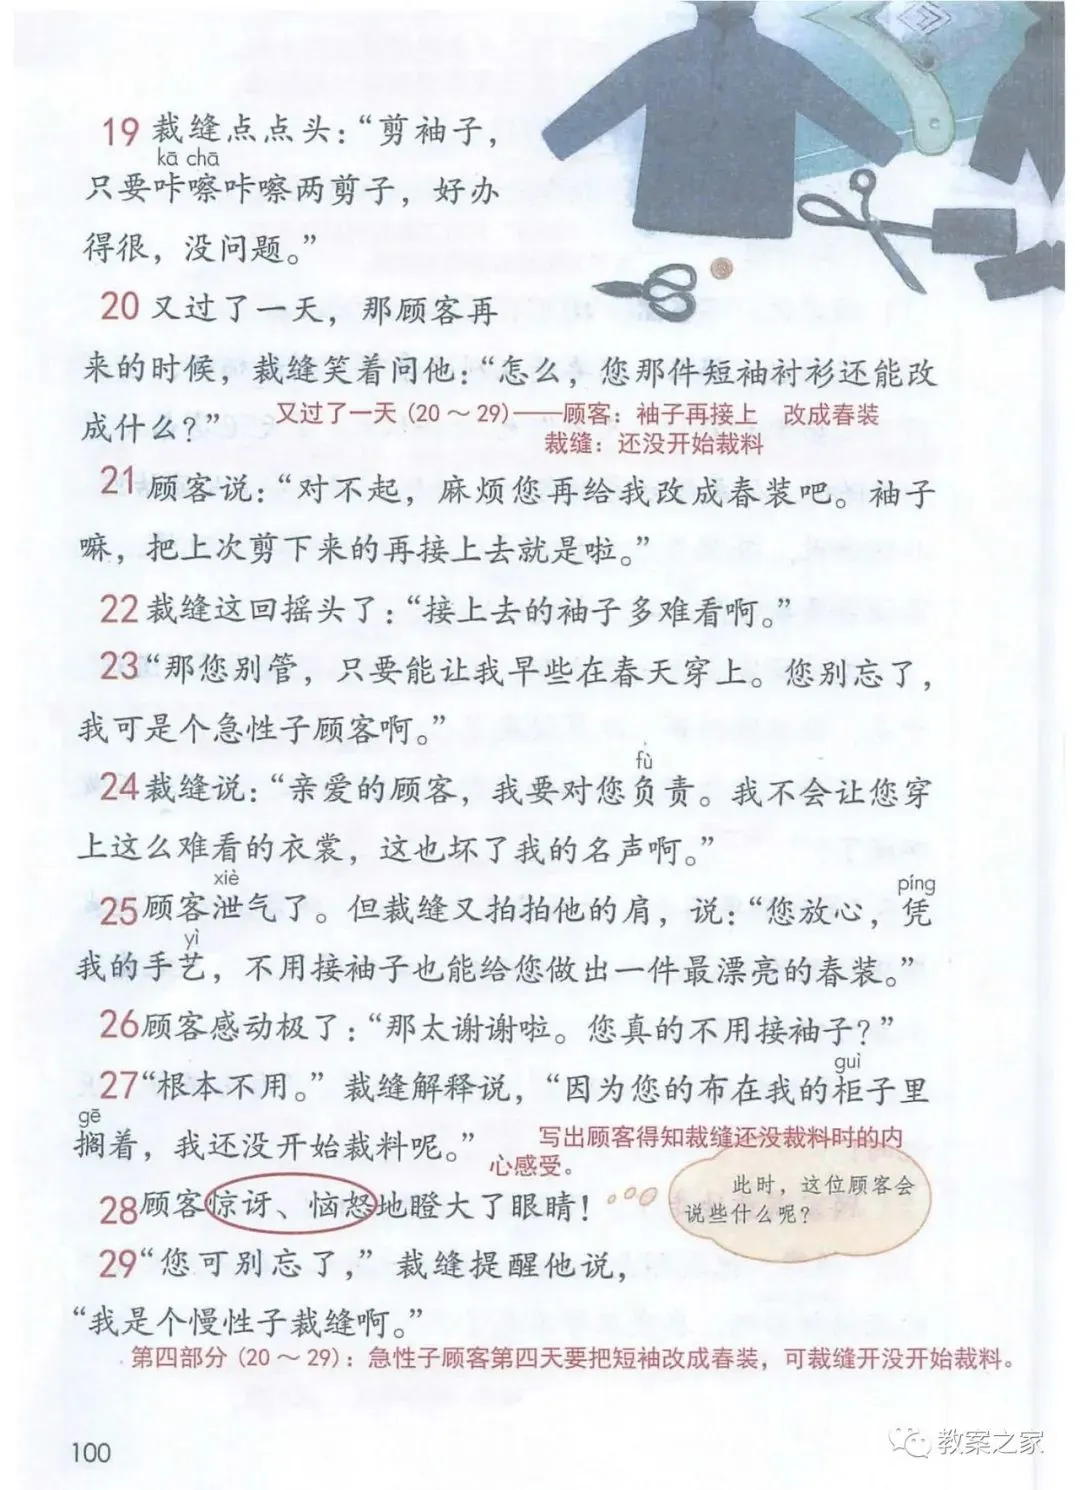 19 裁缝点点头：“剪袖子，
kā chā
只要咔嚓咔嚓两剪子，好办
得很，没问题。”
20 又过了一天，那顾客再
来的时候，裁缝笑着问他：“怎么，您那件短袖衬衫还能改
成什么？”
又过了一天（20～29）——顾客：袖子再接上 改成春装
裁缝：还没开始裁料
21 顾客说：“对不起，麻烦您再给我改成春装吧。袖子
嘛，把上次剪下来的再接上去就是啦。”
22 裁缝这回摇头了：“接上去的袖子多难看啊。”
23 “那您别管，只要能让我早些在春天穿上。您别忘了，
我可是个急性子顾客啊。”
fù
24 裁缝说：“亲爱的顾客，我要对您负责。我不会让您穿
上这么难看的衣裳，这也坏了我的名声啊。”
xiè píng
25 顾客泄气了。但裁缝又拍拍他的肩，说：“您放心，凭
yì
我的手艺，不用接袖子也能给您做出一件最漂亮的春装。”
26 顾客感动极了：“那太谢谢啦。您真的不用接袖子？”
guì
27 “根本不用。”裁缝解释说，“因为您的布在我的柜子里
gē
搁着，我还没开始裁料呢。”
写出顾客得知裁缝还没裁料时的内
心感受。
28 顾客惊讶、恼怒地瞪大了眼睛！
此时，这位顾客会
说些什么呢？
29 “您可别忘了，”裁缝提醒他说，
“我是个慢性子裁缝啊。”
第四部分（20～29）：急性子顾客第四天要把短袖改成春装，可裁缝开没开始裁料。
100
教案之家